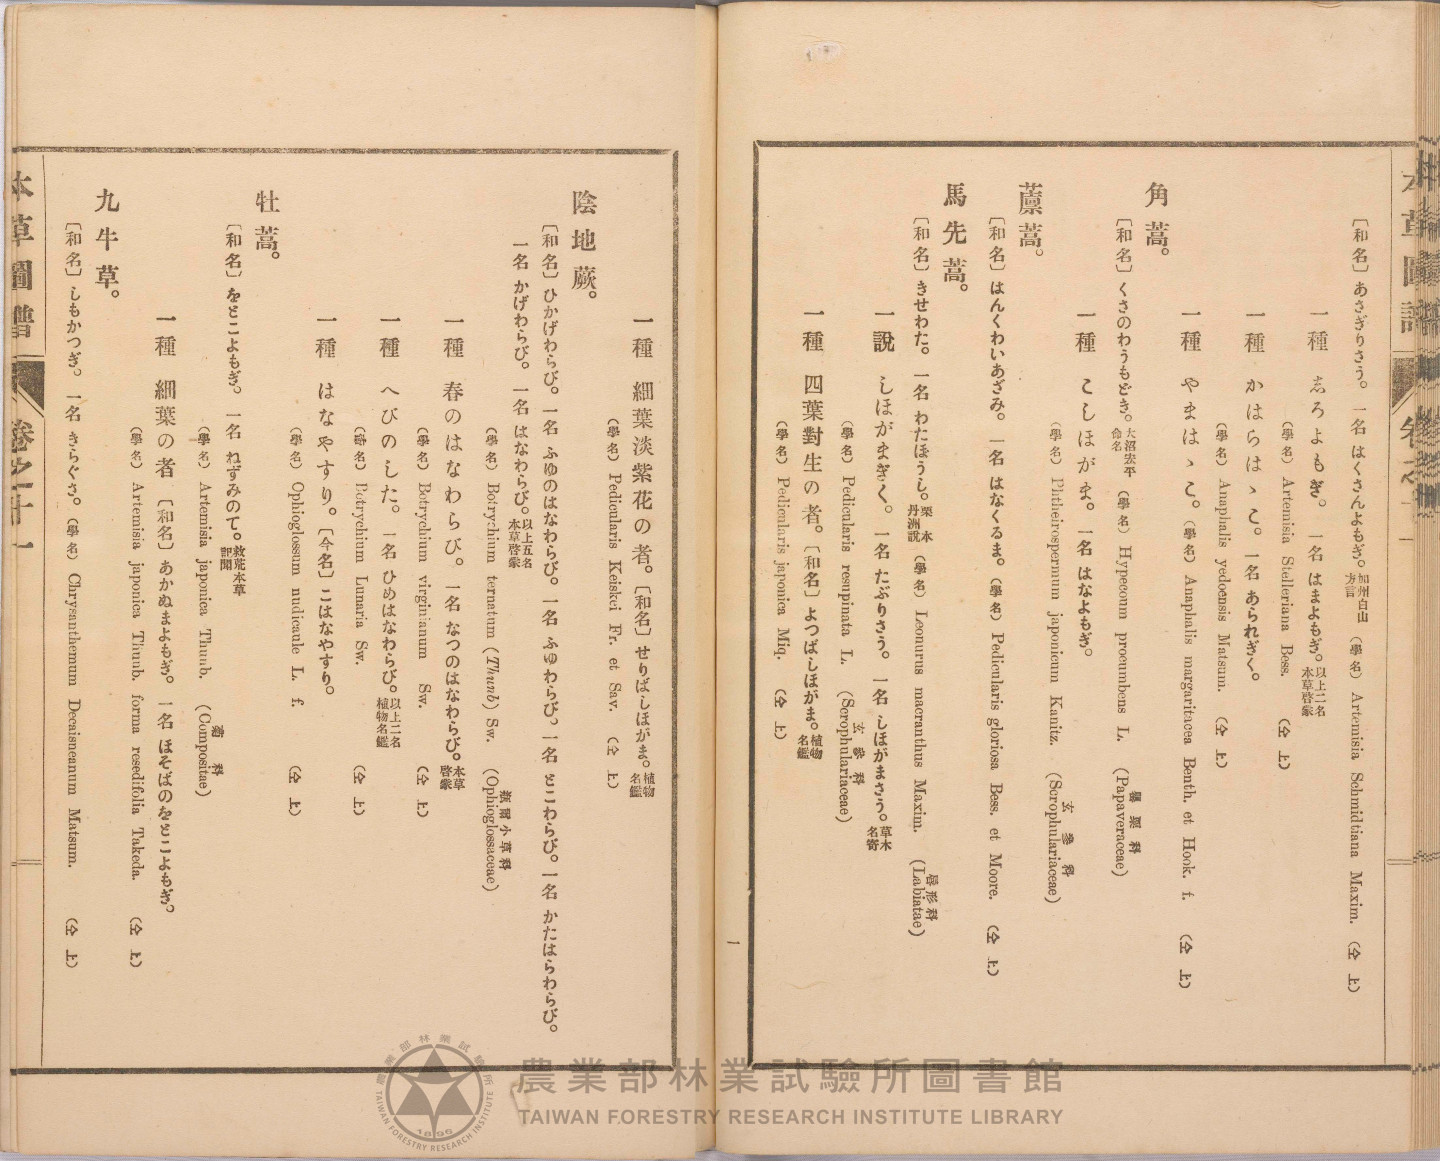 〔和名〕あさぎりさう。 一名 はくさんよもぎ。加州白山方言 (學名) Artemisia Schmidtiana Maxim. (仝上)
一種 志ろよもぎ。 一名 はまよもぎ。以上二名本草啓蒙
(學名) Artemisia Stelleriana Bess. (仝上)
一種 かはらはゝこ。 一名 あられぎく。
(學名) Anaphalis yedoensis Matsum. (仝上)
一種 やまはゝこ。(學名) Anaphalis margaritacea Benth. et Hook. f. (仝上)
角蒿。
〔和名〕くさのわうもどき。大沼宏平命名 (學名) Hypecoum procumbens L. (Papaveraceae)罌粟科
一種 こしほがま。一名 はなよもぎ。
(學名) Phtheirospermum japonicum Kanitz. (Scrophulariaceae)玄參科
藁蒿。
〔和名〕はんくわいあざみ。 一名 はなくるま。(學名) Pedicularis gloriosa Bess. et Moore. (仝上)
馬先蒿。
〔和名〕きせわた。 一名 わたぼうし。栗本丹洲說 (學名) Leonurus macranthus Maxim. (Labiatae)唇形科
一說 しほがまぎく。 一名 たぶりさう。 一名 しほがまさう。草木名寄
(學名) Pedicularis resupinata L. (Scrophulariaceae)玄參科
一種 四葉對生の者。〔和名〕よつばしほがま。植物名鑑
(學名) Pedicularis japonica Miq. (仝上)
一
一種 細葉淡紫花の者。〔和名〕せりばしほがま。植物名鑑
(學名) Pedicularis Keiskei Fr. et Sav. (仝上)
陰地蕨。
〔和名〕ひかげわらび。一名 ふゆのはなわらび。一名 ふゆわらび。一名 とこわらび。一名 かたはらわらび。
一名 かげわらび。 一名 はなわらび。以上五名本草啓蒙
(學名) Botrychium ternatum (Thunb) Sw. (Ophioglossaceae)瓶爾小草科
一種 春のはなわらび。一名 なつのはなわらび。本草啓蒙
(學名) Botrychium virginianum Sw. (仝上)
一種 へびのした。 一名 ひめはなわらび。以上二名植物名鑑
(學名) Botrychium Lunaria Sw. (仝上)
一種 はなやすり。〔今名〕こはなやすり。
(學名) Ophioglossum nudicaule L. f. (仝上)
牡蒿。
〔和名〕をとこよもぎ。 一名 ねずみのて。救荒本草記聞
(學名) Artemisia japonica Thunb. (Compositae)菊科
一種 細葉の者 〔和名〕あかぬまよもぎ。 一名 ほそばのをとこよもぎ。
(學名) Artemisia japonica Thunb. forma resedifolia Takeda. (仝上)
九牛草。
〔和名〕しもかつぎ。 一名 きらぐさ。(學名) Chrysanthemum Decaisneanum Matsum. (仝上)
本草圖譜 卷之十一
農業部林業試驗所圖書館
TAIWAN FORESTRY RESEARCH INSTITUTE LIBRARY
農業部林業試驗所
TAIWAN FORESTRY RESEARCH INSTITUTE
1896